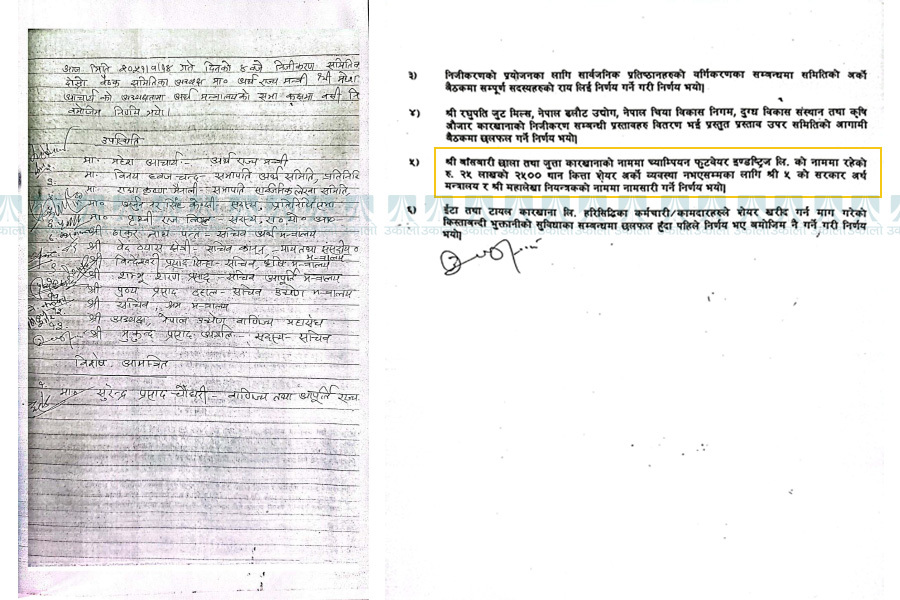 आज मिति २०५१/९/१४ गते दिनको ४ बजे निजीकरण समितिको
बैठक समितिका अध्यक्ष मा० अर्थ राज्य मन्त्री श्री महेश
आचार्यको अध्यक्षतामा अर्थ मन्त्रालयको सभा कक्षमा बसी नि
बमोजिम निर्णय भयो।
उपस्थिति
मा. महेश आचार्य - अर्थ राज्य मन्त्री
मा. विनय ध्वज चन्द - सभापति अर्थ समिति, प्रतिनिधि
मा. राधा कृष्ण मैनाली - सभापति सार्वजनिक लेखा समिति,
मा० सिंह केसी, सदस्य, प्रतिनिधि सभा
मा० लक्ष्मी राज - सदस्य,
श्री ठाकुर नाथ पन्त - सचिव अर्थ मन्त्रालय
श्री वेद व्यास क्षेत्री - सचिव कानून, न्याय तथा संसदीय
मन्त्रालय
श्री विन्देश्वरी प्रसाद सिन्हा - सचिव, कृषि मन्त्रालय
श्री शम्भु शरण प्रसाद - सचिव आपूर्ति मन्त्रालय
श्री पुण्य प्रसाद दाहाल - सचिव उद्योग मन्त्रालय
श्री सचिव, श्रम मन्त्रालय
श्री अध्यक्ष, नेपाल उद्योग वाणिज्य महासंघ
श्री मुकुन्द प्रसाद अर्याल - सदस्य - सचिव
विशेष आमन्त्रित
मा० सुरेन्द्र प्रसाद चौधरी - वाणिज्य तथा आपूर्ति राज्य
३) निजीकरणको प्रयोजनका लागि सार्वजनिक प्रतिष्ठानहरुको वर्गिकरणका सम्बन्धमा समितिको अर्को
बैठकमा सम्पूर्ण सदस्यहरुको राय लिई निर्णय गर्ने गरी निर्णय भयो।
४) श्री रघुपति जुट मिल्स, नेपाल ढलौट उद्योग, नेपाल चिया विकास निगम, दुग्ध विकास संस्थान तथा कृषि
औजार कारखानाको निजीकरण सम्बन्धी प्रस्तावहरु वितरण भई प्रस्तुत प्रस्ताव उपर समितिको आगामी
बैठकमा छलफल गर्ने निर्णय भयो।
५) श्री बांसबारी छाला तथा जुत्ता कारखानाको नाममा च्याम्पियन फूटवेयर इण्डष्ट्रिज लि. को नाममा रहेको
रु. २५ लाखको २५०० थान कित्ता शेयर अर्को व्यवस्था नभएसम्मका लागि श्री ५ को सरकार अर्थ
मन्त्रालय र श्री महालेखा नियन्त्रकको नाममा नामसारी गर्ने निर्णय भयो।
६) ईटा तथा टायल कारखाना लि. हरिसिद्धिका कर्मचारी/कामदारहरुले शेयर खरीद गर्न माग गरेको
किस्ताबन्दी भुक्तानीको सुविधाका सम्बन्धमा छलफल हुँदा पहिले निर्णय भए बमोजिम नै गर्ने गरी निर्णय
भयो।